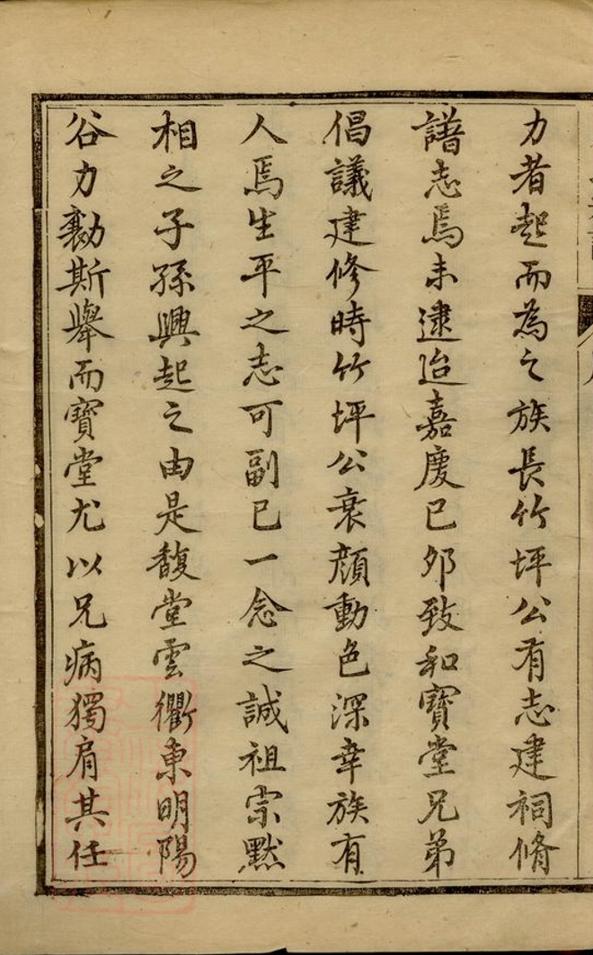 力者起而為之族長竹坪公有志建祠脩
譜志焉未逮迨嘉慶已夘致和寶堂兄弟
倡議建修時竹坪公衰顔動色深幸族有
人焉生平之志可副已一念之誠祖宗黙
相之子孫興起之由是馥堂雲衢東明陽
谷力勷斯舉而寶堂尤以兄病獨肩其任